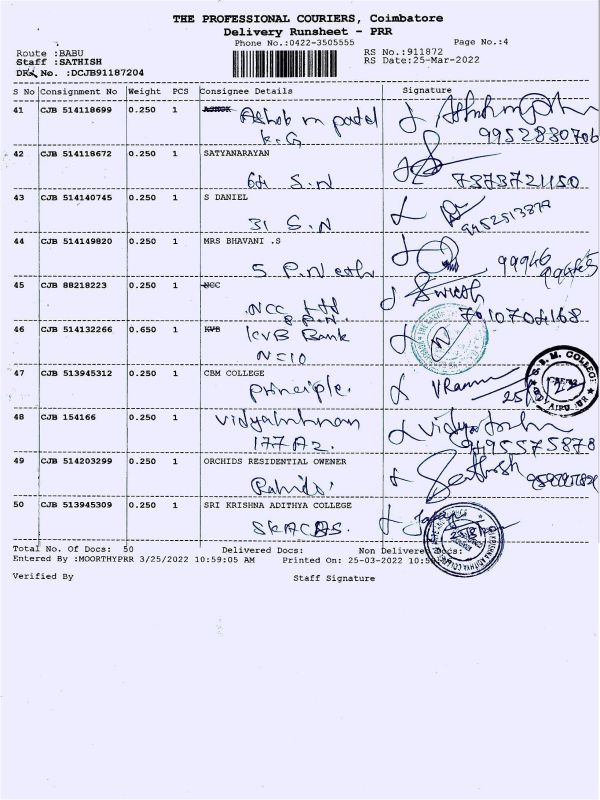 THE PROFESSIONAL COURIERS, Coimbatore
Delivery Runsheet - PRR
Phone No.:0422-3505555
Page No.:4
Route :BABU
RS No.:911872
Staff :SATHISH
RS Date:25-Mar-2022
DRS No. :DCJB91187204
S No Consignment No Weight PCS Consignee Details Signature
41 CJB 514118699 0.250 1 ASHOK Ashok m patel
K.G
9952830706
42 CJB 514118672 0.250 1 SATYANARAYAN
S.N 7373721150
43 CJB 514140745 0.250 1 S DANIEL
31 S.N
44 CJB 514149820 0.250 1 MRS BHAVANI .S
5 P.N
45 CJB 88218223 0.250 1 NCC
NCC Ltd
46 CJB 514132266 0.650 1 KVB KVB Bank
47 CJB 513945312 0.250 1 CBM COLLEGE
principle.
48 CJB 154166 0.250 1
177A2.
49 CJB 514203299 0.250 1 ORCHIDS RESIDENTIAL OWENER
50 CJB 513945309 0.250 1 SRI KRISHNA ADITHYA COLLEGE
SKACAS.
Total No. Of Docs: 50 Delivered Docs: Non Delivered Docs:
Entered By :MOORTHYPRR 3/25/2022 10:59:05 AM Printed On: 25-03-2022
Verified By Staff Signature